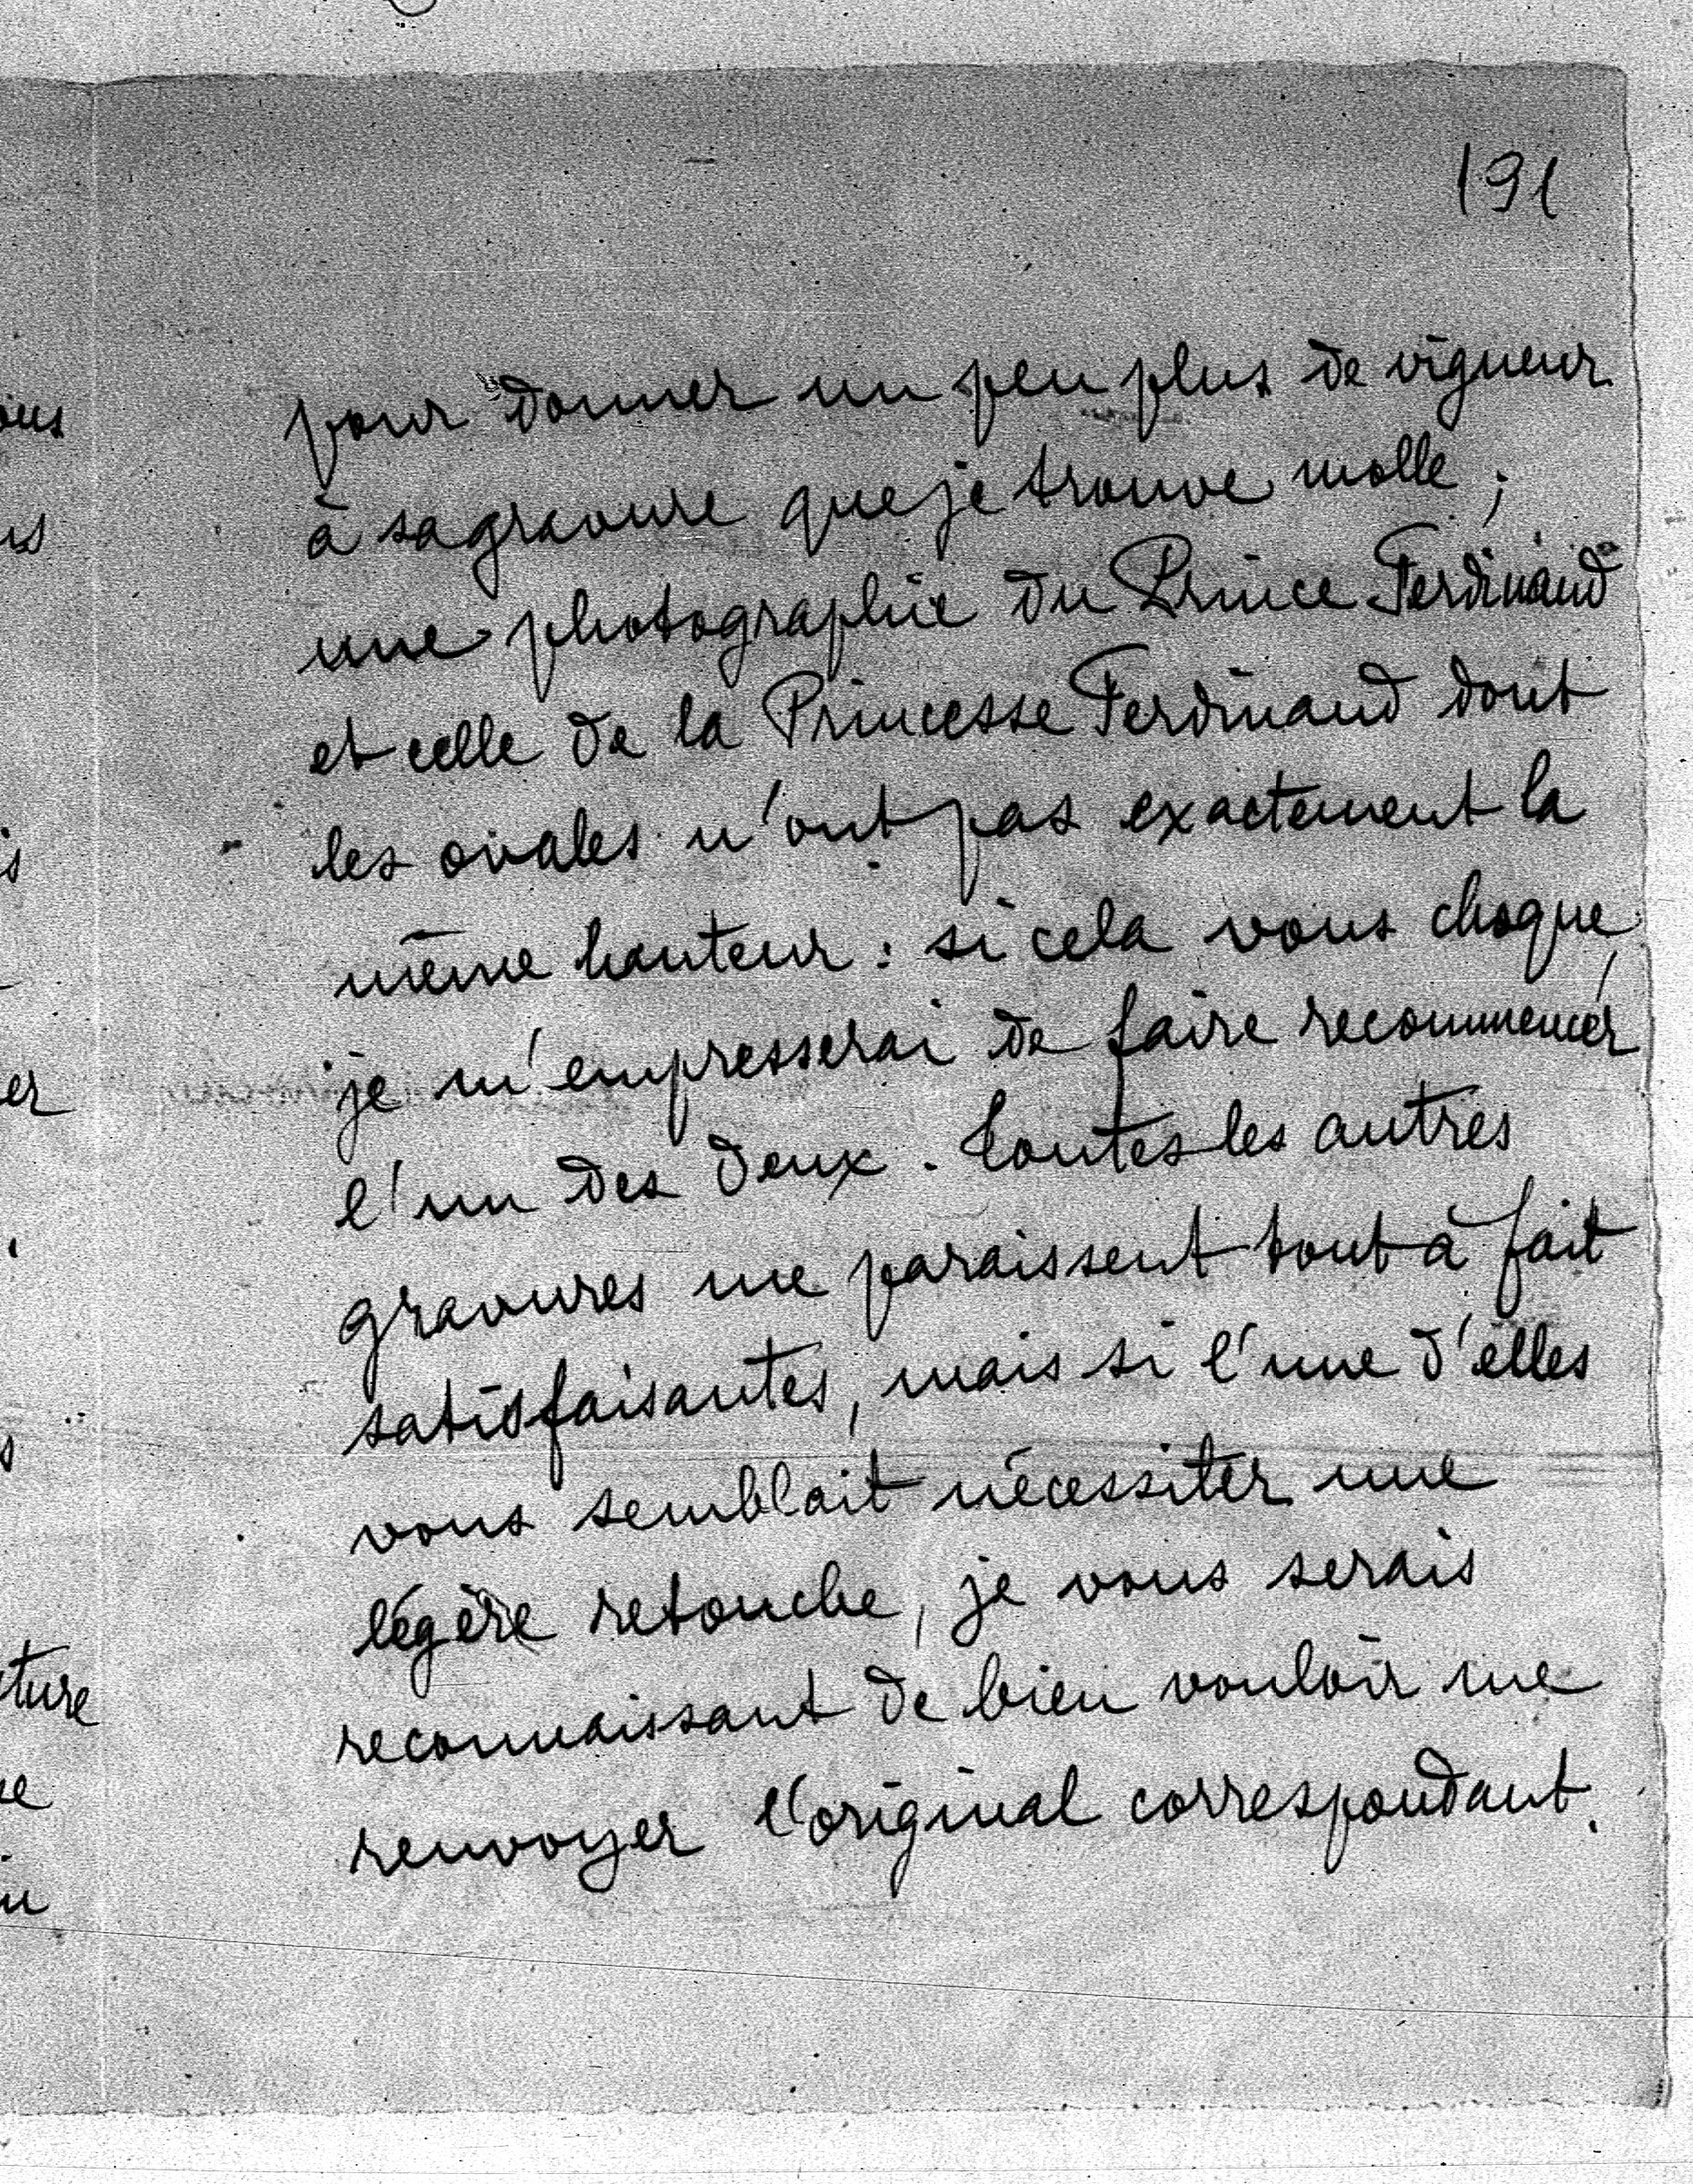 191
pour donner un peu plus de vigueur
à sa gravure que je trouve molle ;
une photographie du Prince Ferdinand
et celle de la Princesse Ferdinand dont
les ovales n'ont pas exactement la
même hauteur : si cela vous choque,
je m'empresserai de faire recommencer
l'un des deux. Toutes les autres
gravures me paraissent tout à fait
satisfaisantes, mais si l'une d'elles
vous semblait nécessiter une
légère retouche, je vous serais
reconnaissant de bien vouloir me
renvoyer l'original correspondant.